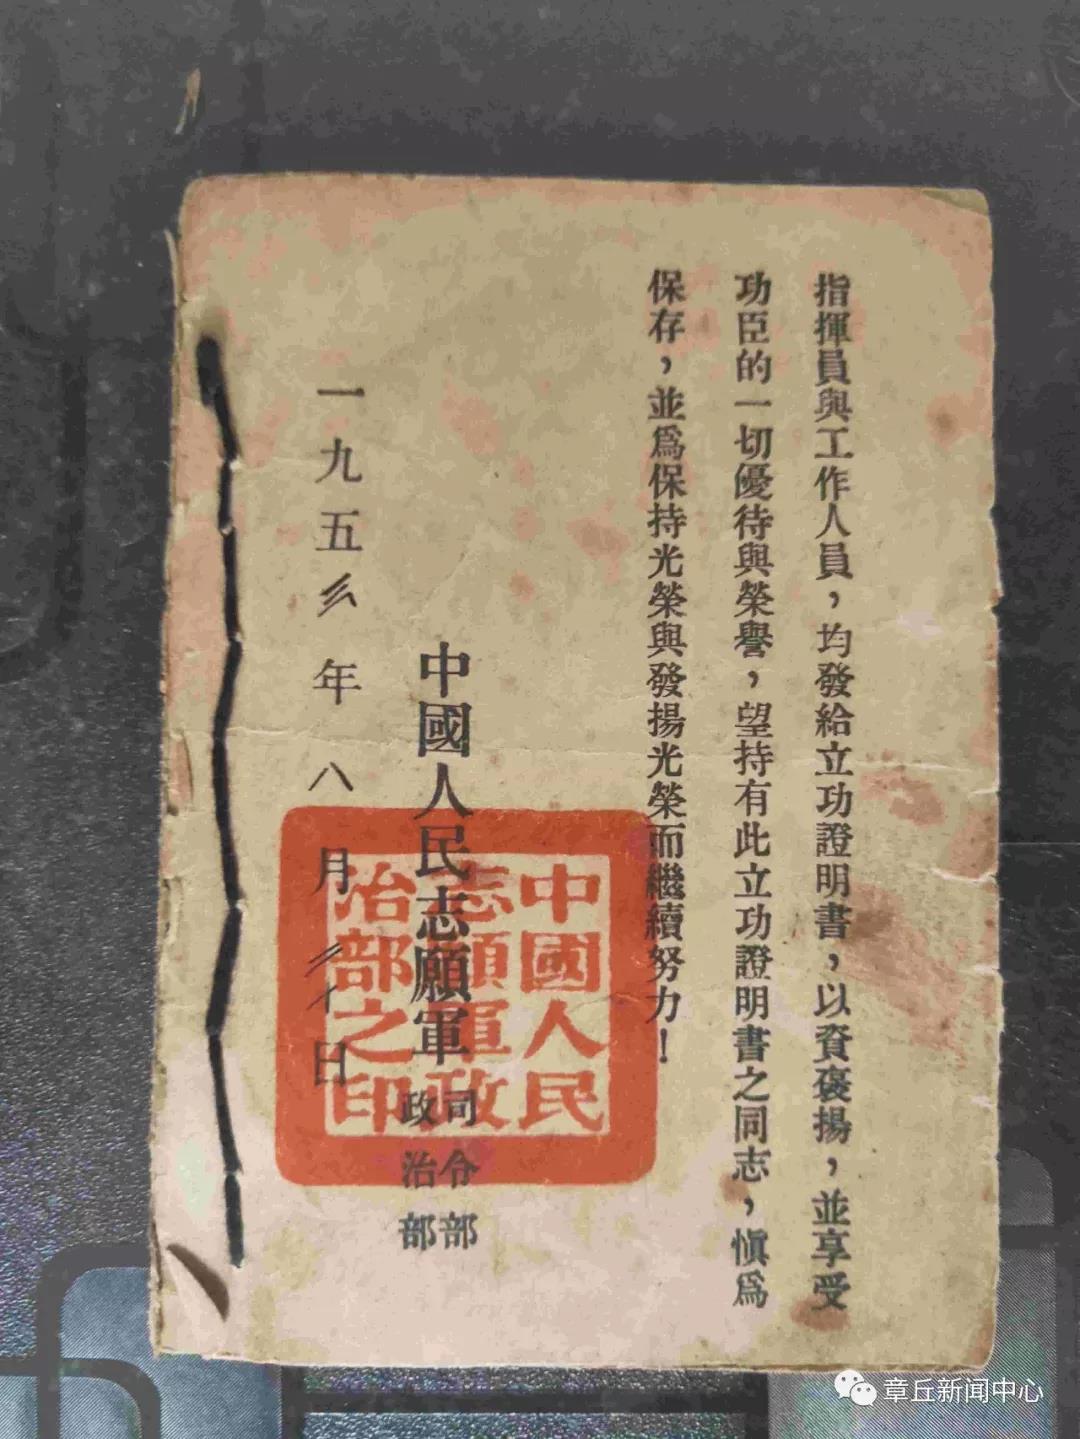 指揮員與工作人員，均發給立功證明書，以資褒揚，並享受
功臣的一切優待與榮譽，望持有此立功證明書之同志，慎爲
保存，並爲保持光榮與發揚光榮而繼續努力！
中國人民志願軍
司令部
政治部
一九五 年八月 日
中國人民
志願軍政
治部之印
章丘新闻中心